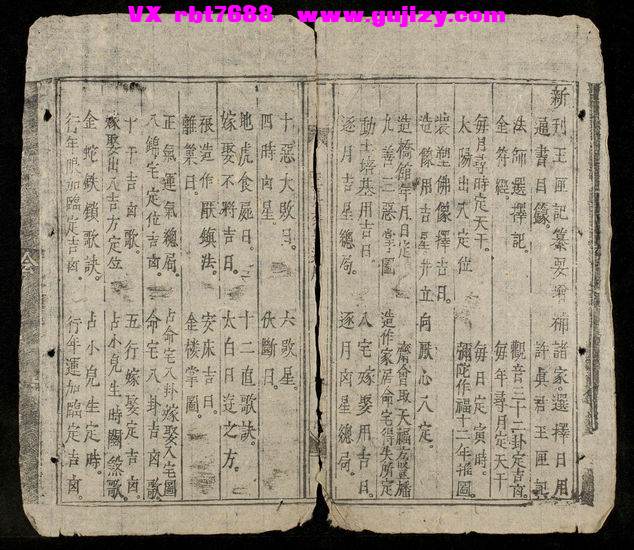 VX rbt7688 www.gujizy.com
新刊玉匣記纂要增補諸家選擇日用
通書目錄
法師選擇記 許真君玉匣記
全符經 觀音三十二卦定吉凶
每月尋時定天干 每年尋月定天干
太陽出入定位 每日定寅時
裝塑佛像擇吉日 彌陀作福十二年推圖
造像用吉星并立向厭心入定
造橋館年月日定 齋會取天福 竪旛
九善三惡掌圖 造作家居命宅得失所定
動土培基用吉日 入宅嫁娶用吉日
逐月吉星總局 逐月凶星總局
十惡大敗日 六敗星
四時凶星 伏斷日
地虎食屍日 十二直歌訣
嫁娶不將吉日 太白日逆之方
張造作厭鎮法 安床吉日
離巢日 金樓掌圖
正氣運氣總局 占命宅八卦嫁娶入宅圖
八歸宅定位吉凶 命宅八卦吉凶歌
十干吉凶歌 五行嫁娶定吉凶
嫁娶出入吉方定位 占小兒生時關煞歌
金蛇鉄鎖歌訣 占小兒生定時
行年眼加臨定吉凶 行年運加臨定吉凶